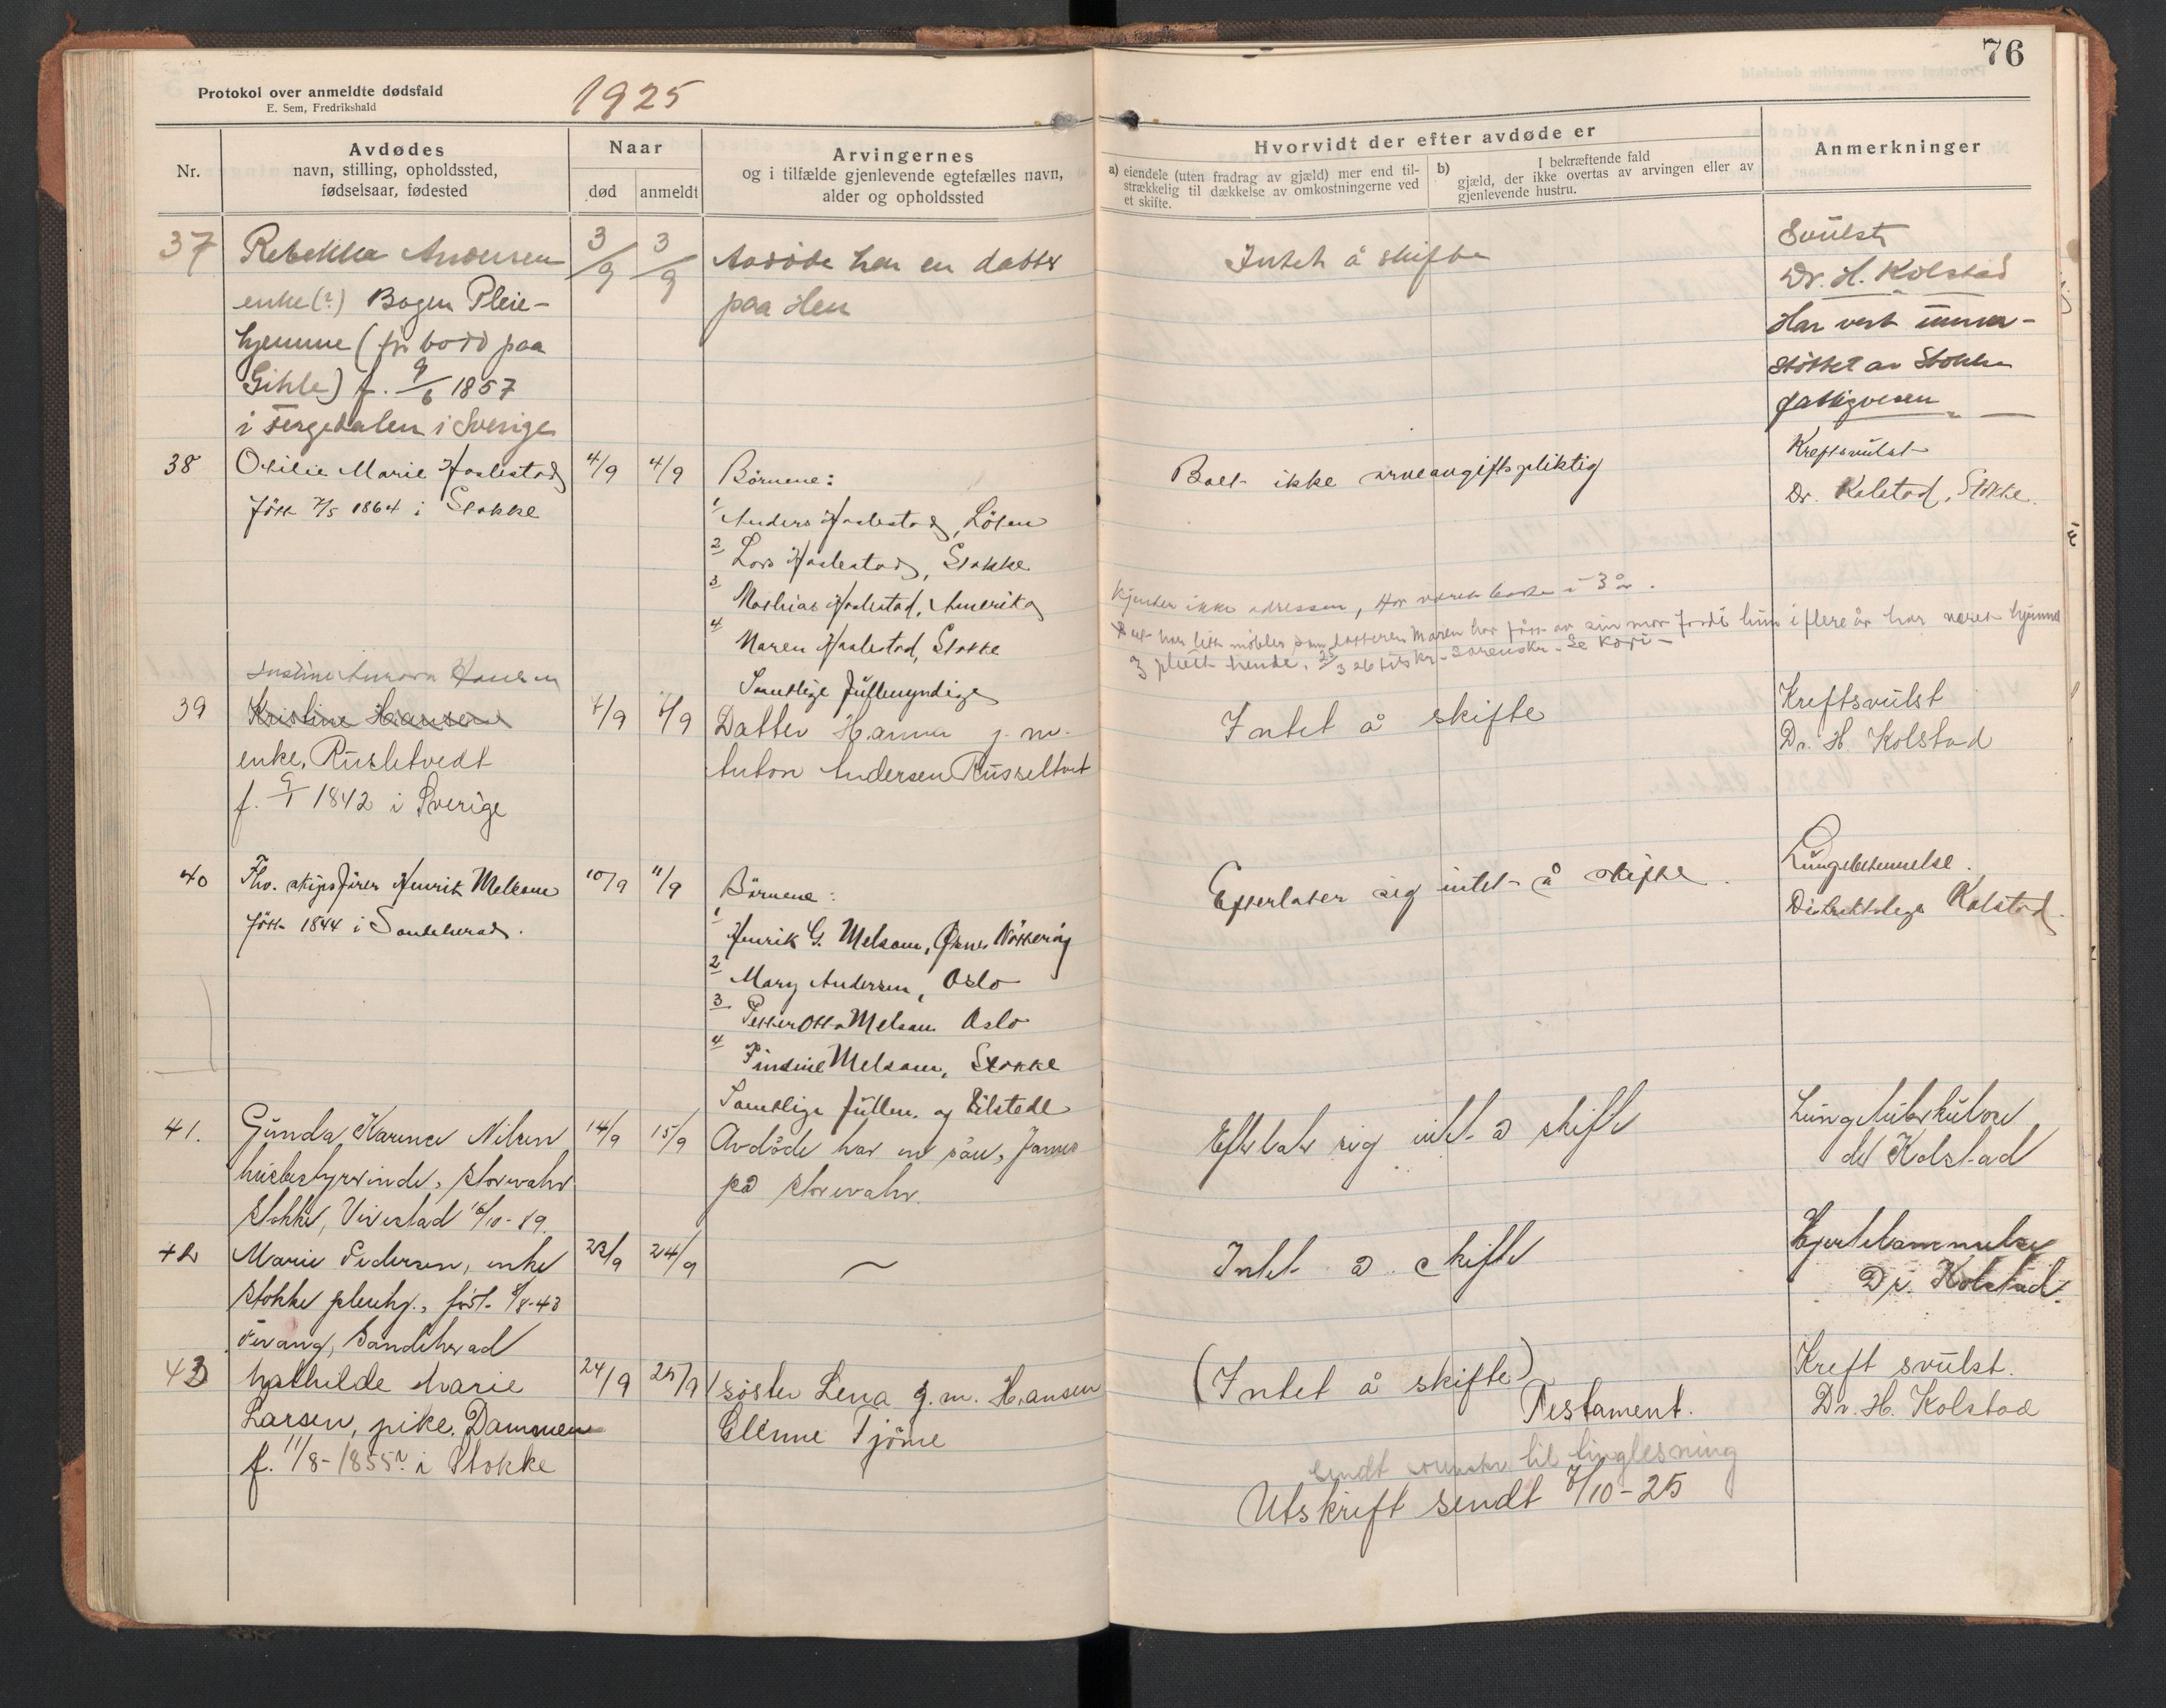 76
Protokol over anmeldte dødsfald
E. Sem, Fredrikshald
1925
Nr.
Avdødes
navn, stilling, opholdssted,
fødselsaar, fødested
Naar
død
anmeldt
Arvingernes
og i tilfælde gjenlevende egtefælles navn,
alder og opholdssted
Hvorvidt der efter avdøde er
a) eiendele (uten fradrag av gjæld) mer end til-
strækkelig til dækkelse av omkostningerne ved
et skifte.
b) I bekræftende fald
gjæld, der ikke overtas av arvingen eller av
gjenlevende hustru.
Anmerkninger
37
Rebekka Andersen
enke(?) Bogen Pleie-
hjemme (før bodd paa
Gihle) f. 9/6 1857
i Fergedalen i Sverige
3/9
3/9
Avdøde har en datter
paa Hen
Intet å skifte
Svulst
Dr. H. Kolstad
Har vert under-
støttet av Stokke
fattigvesen
38
Otilie Marie Haslestad
født 7/5 1864 i Stokke
4/9
4/9
Børnene:
1 Anders Haslestad, Løten
2 Lars Haslestad, Stokke
3 Mathias Haslestad, Amerika
4 Maren Haslestad, Stokke
Samtlige fullmyndige
Boet ikke arveavgiftspliktig
Kjender ikke adressen, Har været borte i 3 år.
Det har litt møbler som datteren Maren har fått av sin mor fordi hun i flere år har været hjemme
Kreftsvulst
Dr. Kolstad, Stokke.
39
Kristine Hansen
enke, Russletvedt
f. 9/1 1842 i Sverige
7/9
8/9
Datter Hanna g. m.
Anton Andersen Russeltvet
Intet å skifte
Kreftsvulst
Dr. H Kolstad
40
Fhv. skipsfører Henrik Melsom
født 1844 i Sandeherad.
10/9
11/9
Børnene:
1 Henrik G. Melsom, Nøtterøy
2 Mary Andersen, Oslo
3 Petter Otto Melsom Oslo
4 Melsom, Stokke
Samtlige fullm. og tilstede
Efterlater sig intet å skifte.
Lungebetennelse.
Distriktslege Kolstad.
41.
Gunda Karine Nilsen
husbestyrerinde, Storevahr
Stokke, Vivestad 16/10-89.
14/9
15/9
Avdøde har en søn, James
på Storevahr.
Efterlater sig intet å skifte
Lungetuberkulose
dr Kolstad
42
Marie Pedersen, enke
Stokke pleiehj., født 8/8-43
Fevang, Sandeherad
23/9
24/9
~
Intet å skifte
Hjertelammelse
Dr. Kolstad.
43
Mathilde Marie
Larsen, pike, Dammen
f. 11/8-1855? i Stokke
24/9
25/9
1 søster Lena g. m. Hansen
Glenne Tjøme
(Intet å skifte)
Testament.
sendt sorenskr til tinglesning
Utskrift sendt 7/10-25
Kreft svulst.
Dr. H. Kolstad